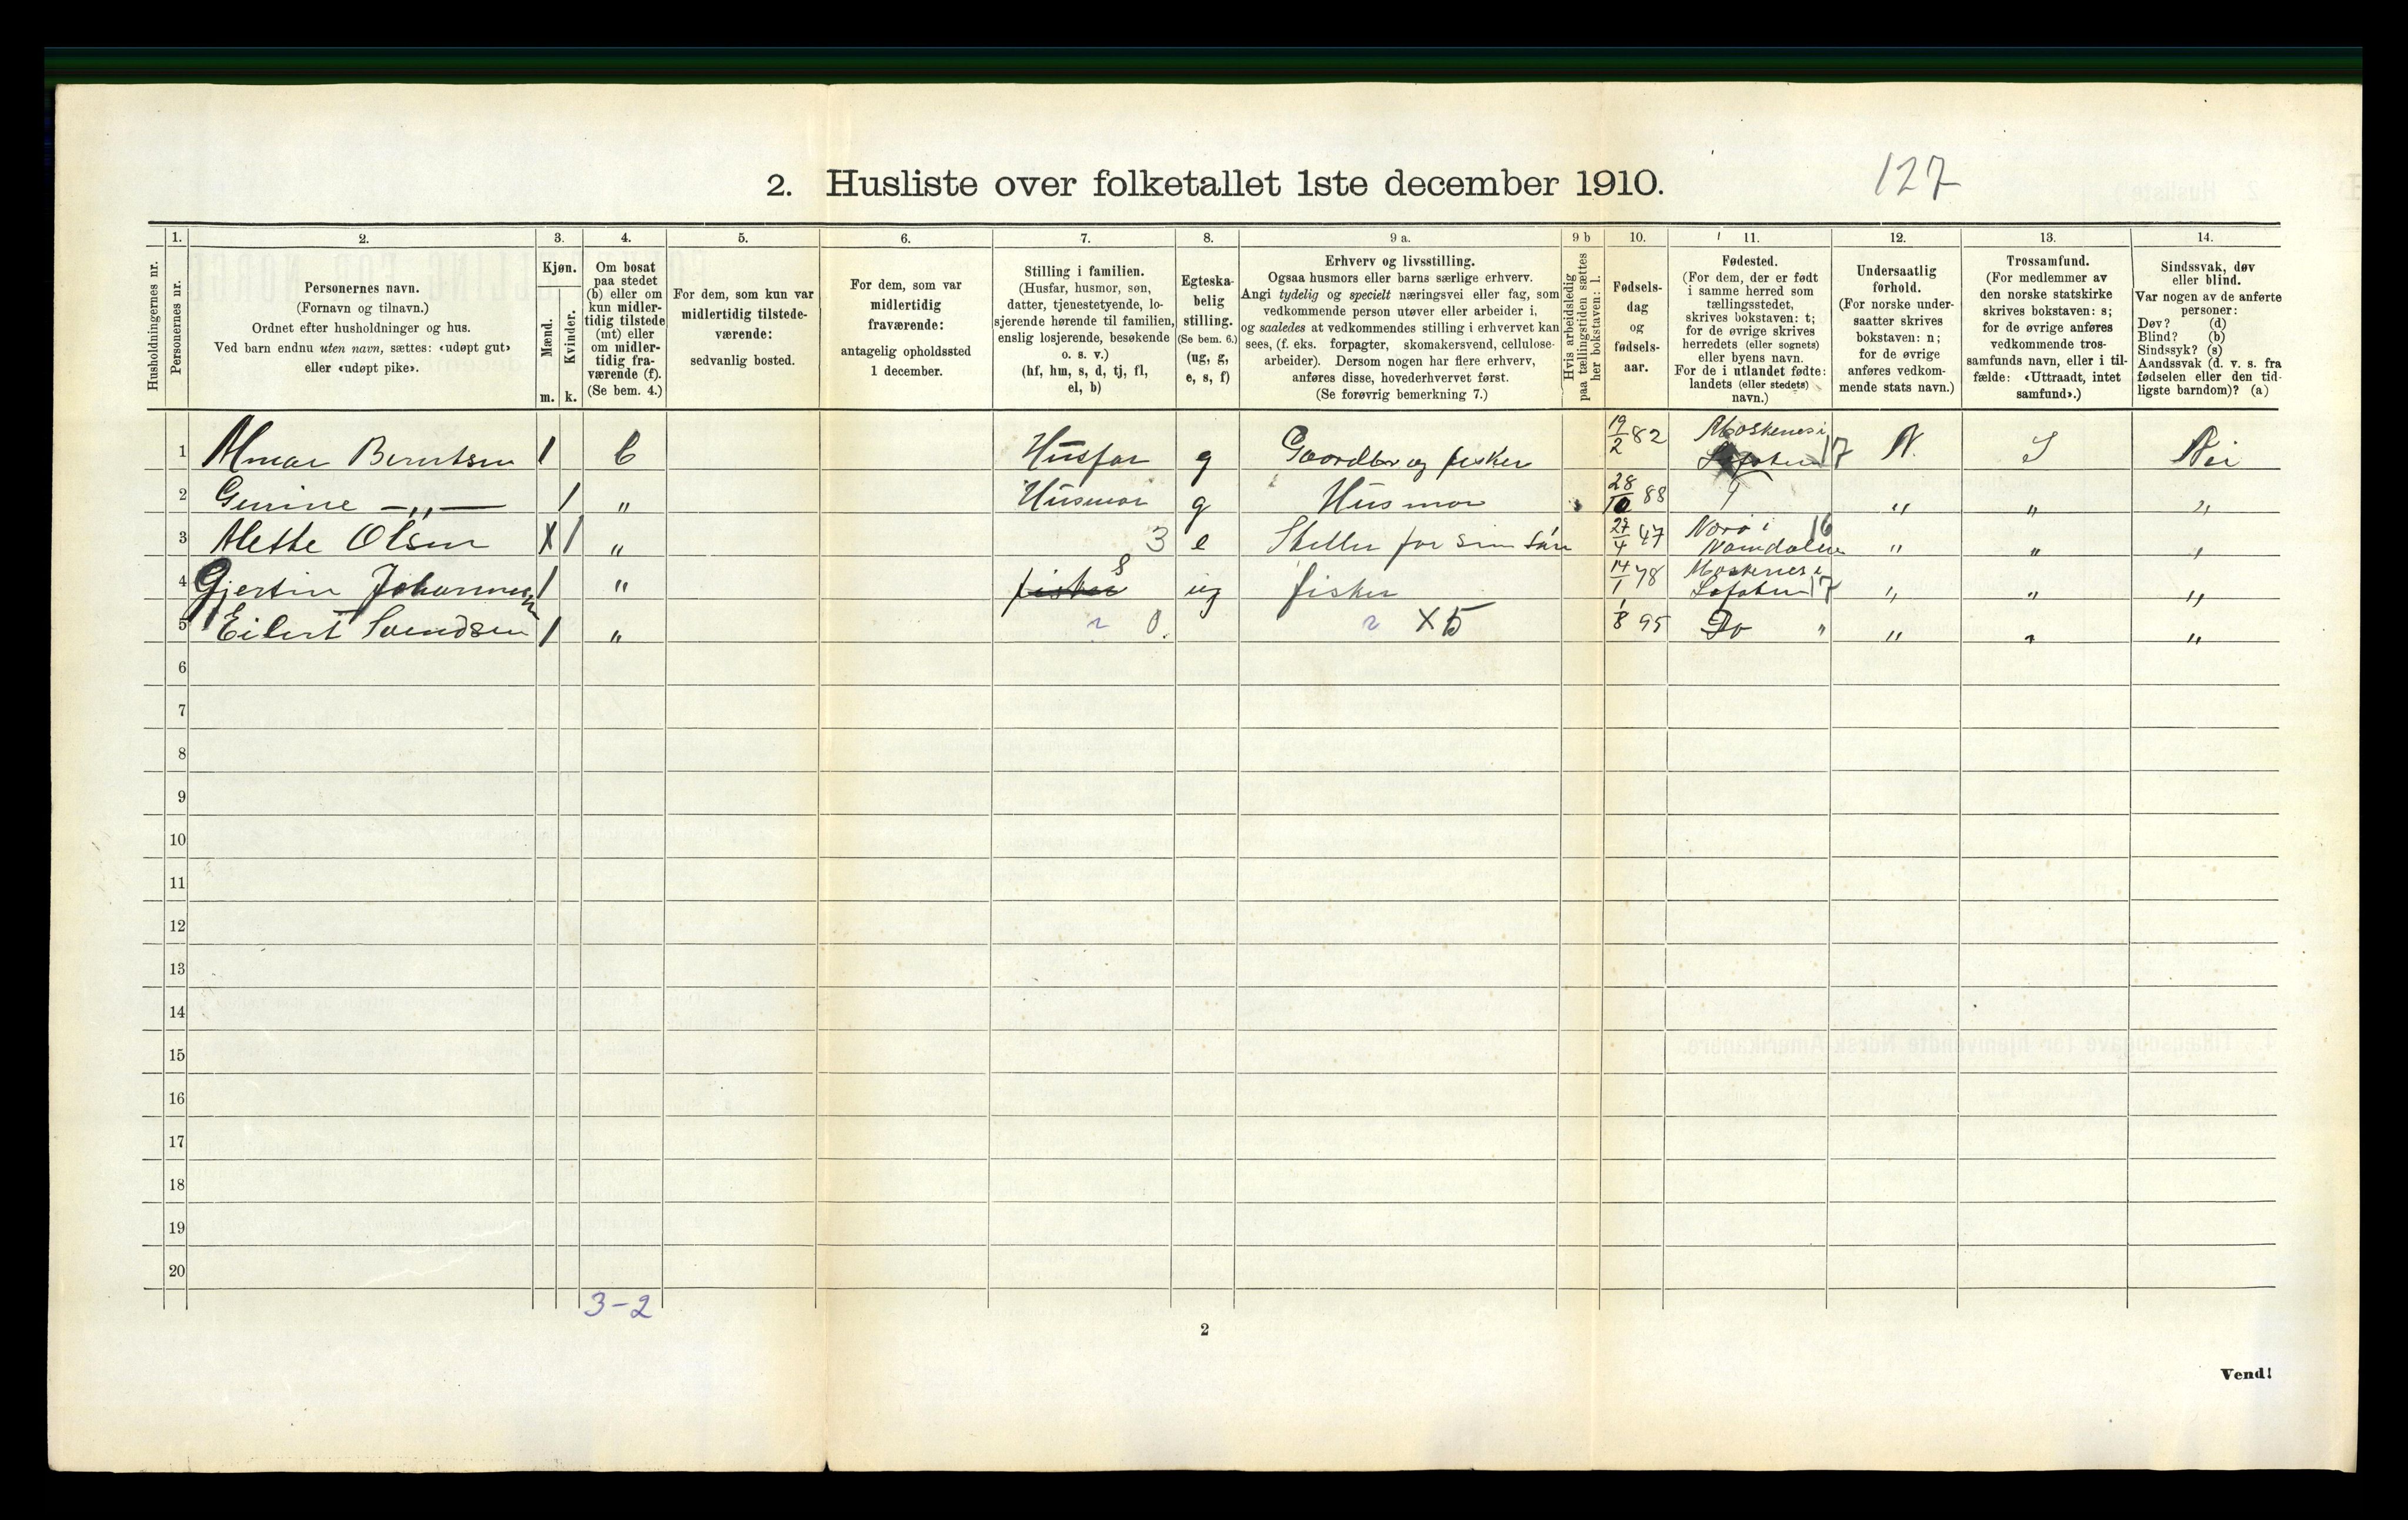 2. Husliste over folketallet 1ste december 1910.
127
Husholdningernes nr.
1.
Personernes nr.
2.
Personernes navn.
(Fornavn og tilnavn.)
Ordnet efter husholdninger og hus.
Ved barn endnu uten navn, sættes: «udøpt gut»
eller «udøpt pike».
3.
Kjøn.
Mænd.
Kvinder.
m. k.
4.
Om bosat
paa stedet
(b) eller om
kun midler-
tidig tilstede
(mt) eller
om midler-
tidig fra-
værende (f).
(Se bem. 4.)
5.
For dem, som kun var
midlertidig tilstede-
værende:
sedvanlig bosted.
6.
For dem, som var
midlertidig
fraværende:
antagelig opholdssted
1 december.
7.
Stilling i familien.
(Husfar, husmor, søn,
datter, tjenestetyende, lo-
sjerende hørende til familien,
enslig losjerende, besøkende
o. s. v.)
(hf, hm, s, d, tj, fl,
el, b)
8.
Egteska-
belig
stilling.
(Se bem. 6.)
(ug, g,
e, s, f)
9 a.
Erhverv og livsstilling.
Ogsaa husmors eller barns særlige erhverv.
Angi tydelig og specielt næringsvei eller fag, som
vedkommende person utøver eller arbeider i,
og saaledes at vedkommendes stilling i erhvervet kan
sees, (f. eks. forpagter, skomakersvend, cellulose-
arbeider). Dersom nogen har flere erhverv,
anføres disse, hovederhvervet først.
(Se forøvrig bemerkning 7.)
9 b
Hvis arbeidsledig
paa tællingstiden sættes
her bokstaven: l.
10.
Fødsels-
dag
og
fødsels-
aar.
11.
Fødested.
(For dem, der er født
i samme herred som
tællingsstedet,
skrives bokstaven: t;
for de øvrige skrives
herredets (eller sognets)
eller byens navn.
For de i utlandet fødte:
landets (eller stedets)
navn.)
12.
Undersaatlig
forhold.
(For norske under-
saatter skrives
bokstaven: n;
for de øvrige
anføres vedkom-
mende stats navn.)
13.
Trossamfund.
(For medlemmer av
den norske statskirke
skrives bokstaven: s;
for de øvrige anføres
vedkommende tros-
samfunds navn, eller i til-
fælde: «Uttraadt, intet
samfund».)
14.
Sindssvak, døv
eller blind.
Var nogen av de anførte
personer:
Døv? (d)
Blind? (b)
Sindssyk? (s)
Aandssvak (d. v. s. fra
fødselen eller den tid-
ligste barndom)? (a)
1 Almar Berntsen 1 b Husfar g Gaardbr og fisker 19/2 82 Moskenes i Lofoten 17 N. S Nei
2 Gurine —„— 1 „ Husmor g Husmor 28/10 88 „ „ „
3 Mette Olsen X 1 „ 3 e Steller for sin søn 27/4 47 Nærø i Namdalen 16 „ „ „
4 Gjertin Johannesen 1 „ fisker 8 ug fisker 14/1 78 Moskenes i Lofoten 17 „ „ „
5 Eilert Svendsen 1 „ „ 0. „ X 5 1/8 95 Do „ „ „ „
6
7
8
9
10
11
12
13
14
15
16
17
18
19
20
3-2
2
Vend!